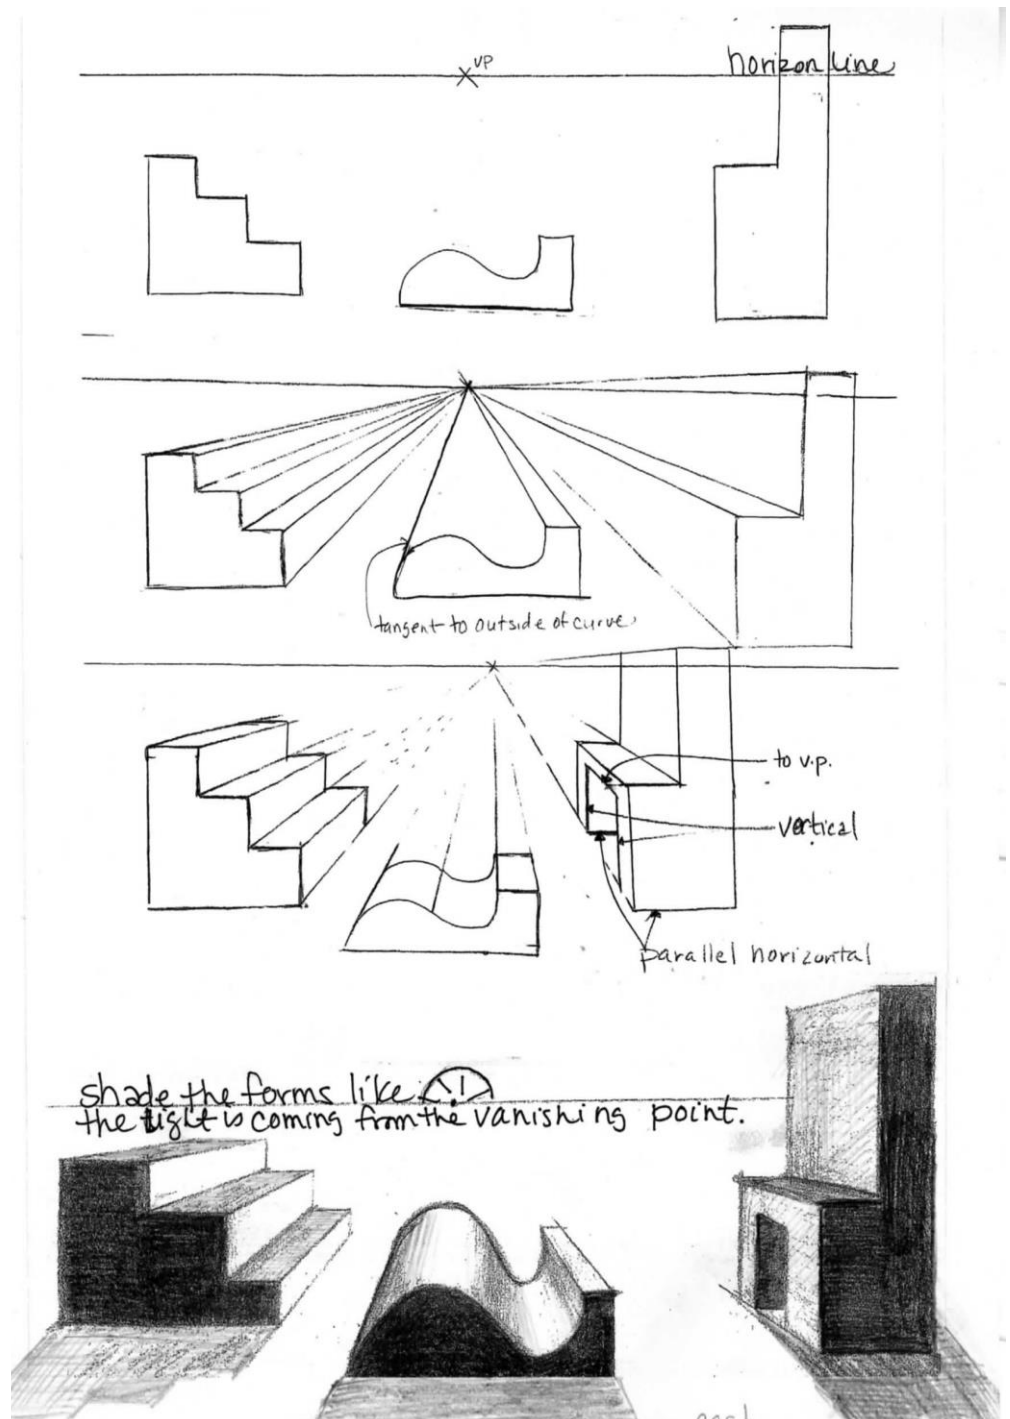 VP
horizon line
tangent to outside of curve
to v.p.
vertical
parallel horizontal
shade the forms like
the light is coming from the vanishing point.